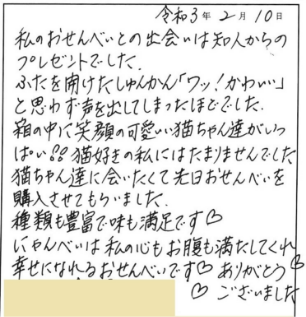 令和3年2月10日
私のおせんべいとの出会いは知人からの
プレゼントでした.
ふたを開けたしゅんかん「ワッ!かわいい」
と思わず声を出してしまったほどでした.
箱の中に笑顔の可愛い猫ちゃん達がいっ
ぱい!! 猫好きの私にはたまりませんでした
猫ちゃん達に会いたくて先日おせんべいを
購入させてもらいました.
種類も豊富で味も満足です♡
にゃんべいは私の心もお腹も満たしてくれ
幸せになれるおせんべいです♡ ありがとう
♡ ございました